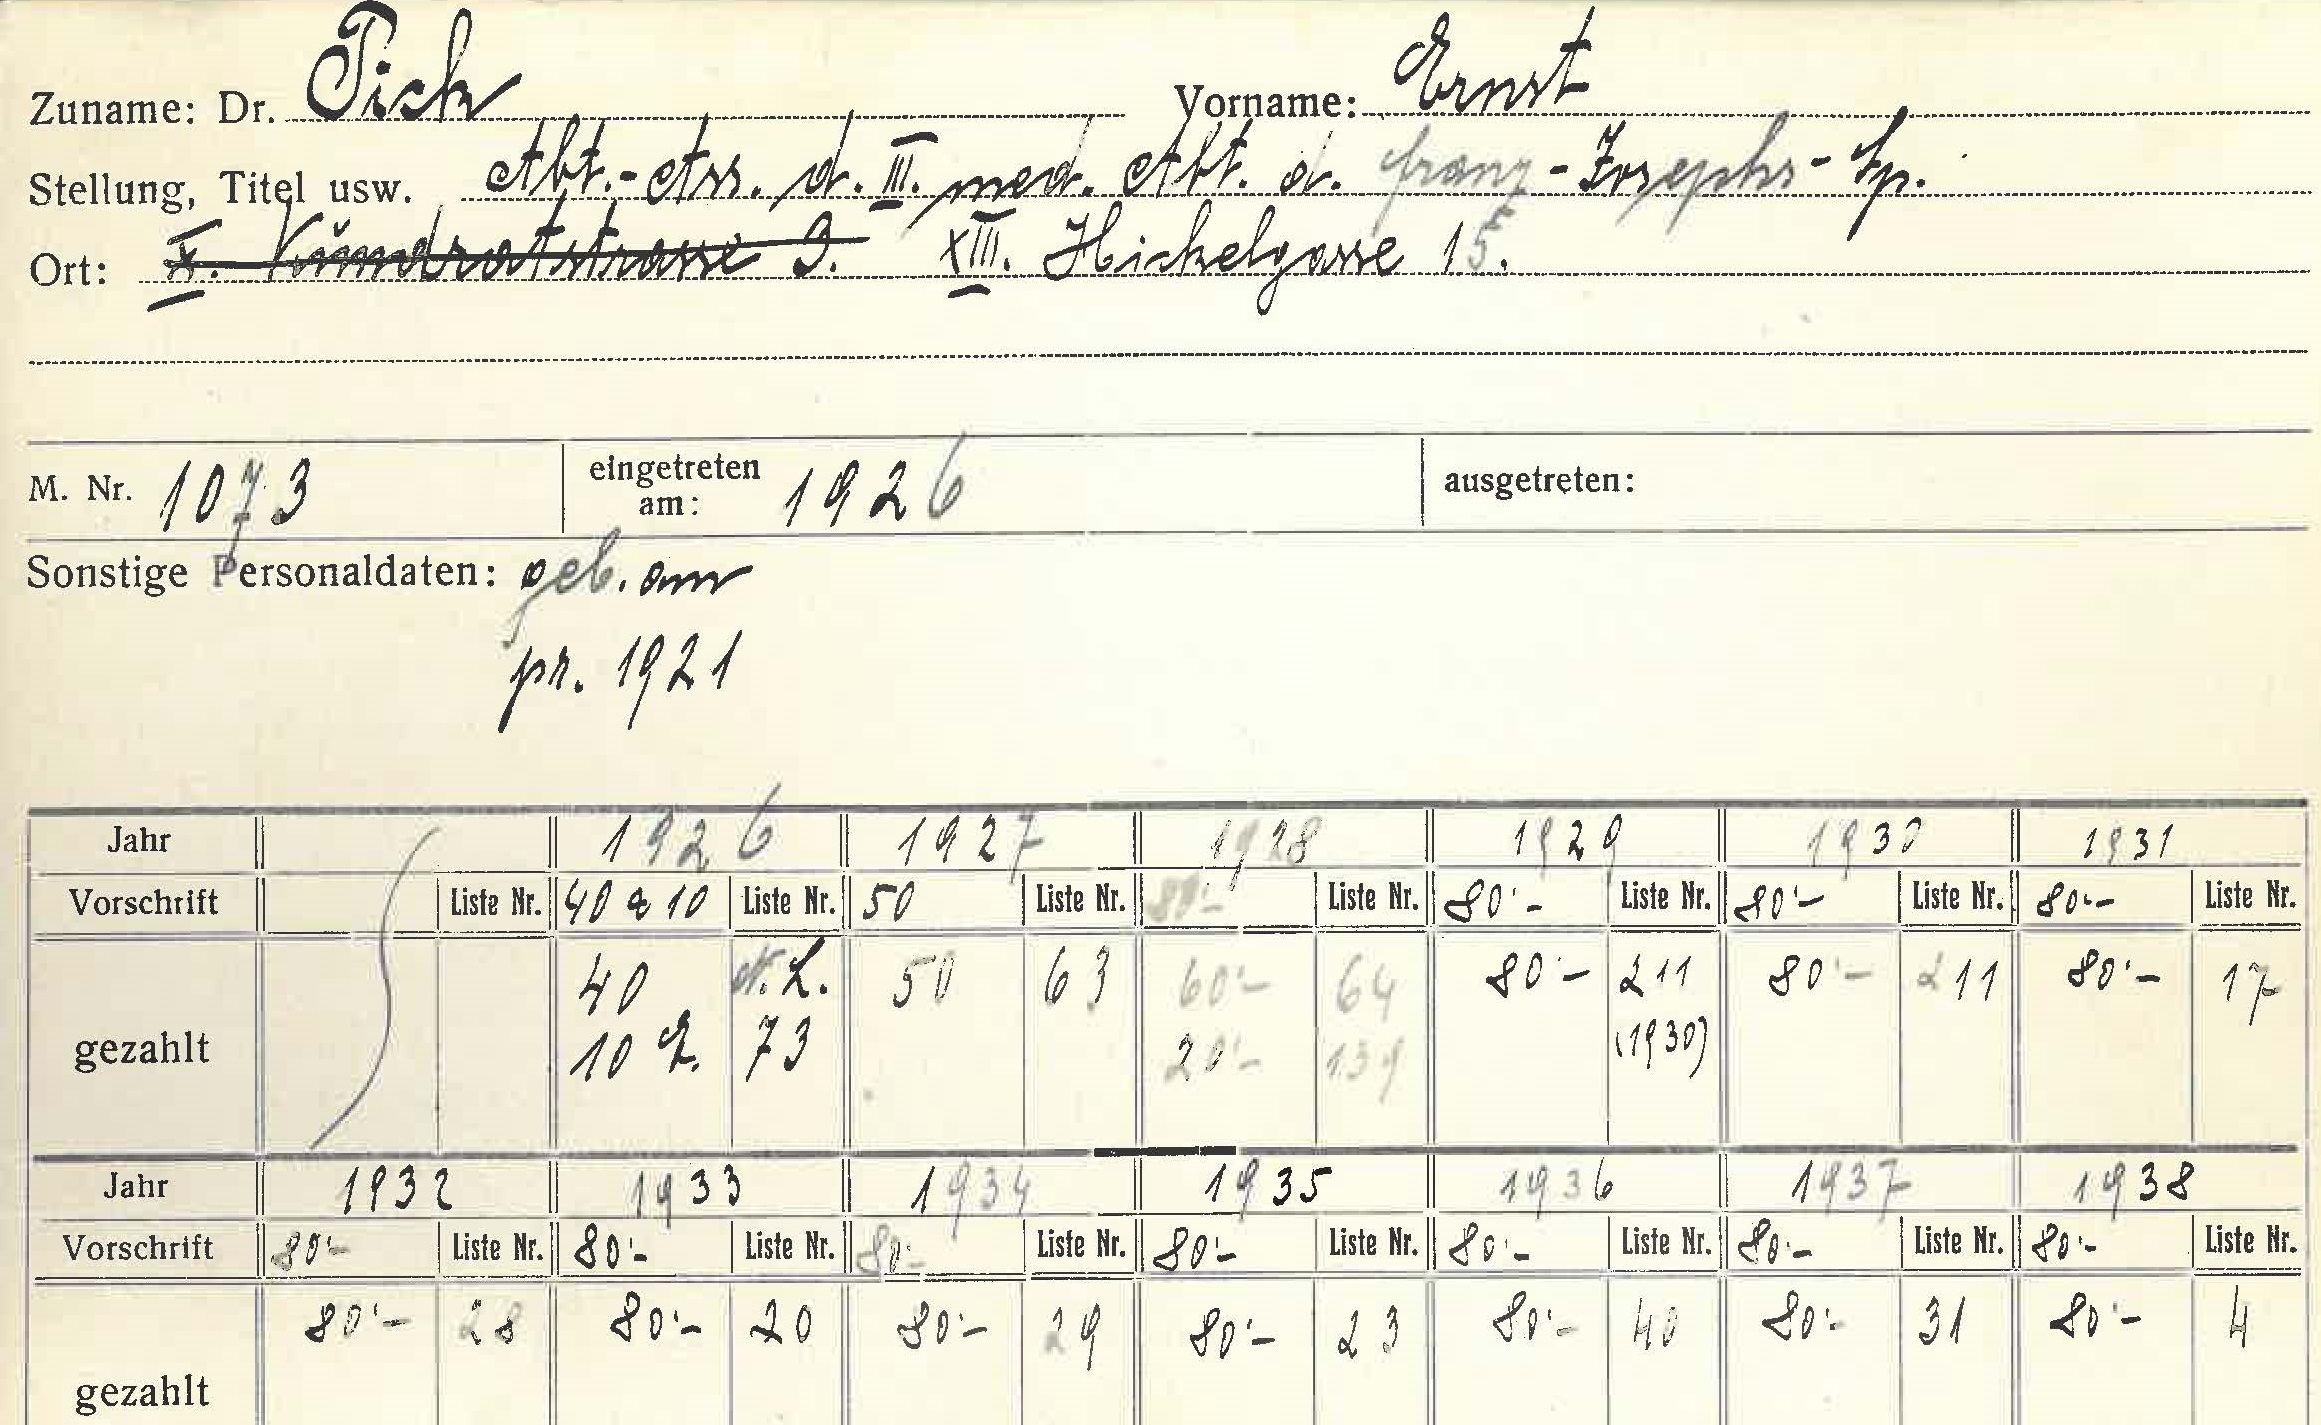 Zuname: Dr. Pick Vorname: Ernst
Stellung, Titel usw. Abt.-Ass. d. III. med. Abt. d. Franz-Josephs-Sp.
Ort: X. Kundratstrasse 9. XIII. Hickelgasse 15.
M. Nr. 1073 eingetreten am: 1926 ausgetreten:
Sonstige Personaldaten: geb. am
pr. 1921
Jahr 1926 1927 1928 1929 1930 1931
Vorschrift Liste Nr. 40 & 10 Liste Nr. 50 Liste Nr. 80'- Liste Nr. 80'- Liste Nr. 80'- Liste Nr. 80'- Liste Nr.
gezahlt 40 N. L. 50 63 60'- 64 80'- 211 80'- 211 80'- 17
10 73 20'- 139 (1930)
Jahr 1932 1933 1934 1935 1936 1937 1938
Vorschrift 80'- Liste Nr. 80'- Liste Nr. 80'- Liste Nr. 80'- Liste Nr. 80'- Liste Nr. 80'- Liste Nr. 80'- Liste Nr.
gezahlt 80'- 28 80'- 20 80'- 29 80'- 23 80'- 40 80'- 31 80'- 4